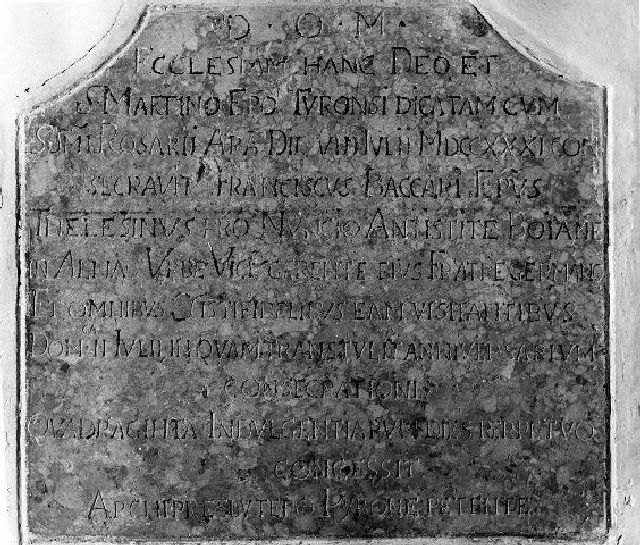 D · O · M ·
ECCLESIAM HANC DEO ET
S MARTINO EPO TURONSI DICATAM CUM
SSMI ROSARII ARA DIE VIII IULII MDCCXXXI CON
SECRAVIT FRANCISCUS BACCARI EPUS
THELESINUS PRO NUNCIO ANTISTITE BOIANE
IN ALMA URBE VICEGERENTE EIUS FRATRE GERMANO
ET OMNIBUS XSTI FIDELIBUS EAM VISITANTIBUS
DOM II IULII IN QUAM TRANSTULIT ANNIVERSARIUM
CONSECRATIONIS
QUADRAGINTA INDULGENTIARUM DIES PERPETUO
CONCESSIT
ARCHIPRESBYTERO PETENTE